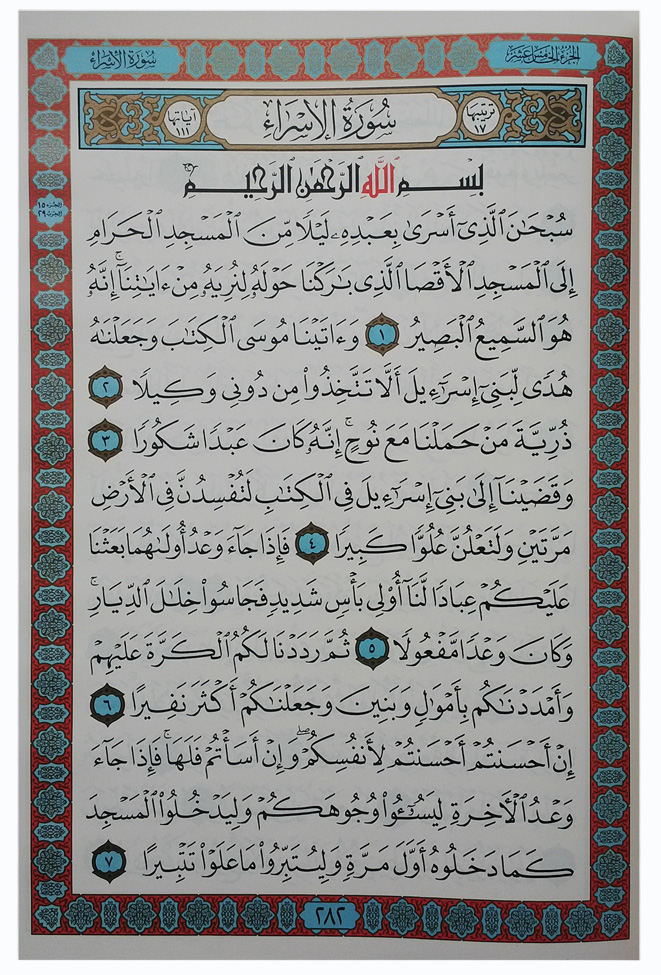 سُورَةُ الْإِسْرَاءِ
الجُزْءُ الخَامِسَ عَشَرَ
ترتيبها
١٧
سُورَةُ الإِسْرَاءِ
آياتها
١١١
بِسْمِ اللَّهِ الرَّحْمَٰنِ الرَّحِيمِ
الجزء ١٥
الحزب ٢٩
سُبْحَٰنَ ٱلَّذِىٓ أَسْرَىٰ بِعَبْدِهِۦ لَيْلًا مِّنَ ٱلْمَسْجِدِ ٱلْحَرَامِ
إِلَى ٱلْمَسْجِدِ ٱلْأَقْصَا ٱلَّذِى بَٰرَكْنَا حَوْلَهُۥ لِنُرِيَهُۥ مِنْ ءَايَٰتِنَآ ۚ إِنَّهُۥ
هُوَ ٱلسَّمِيعُ ٱلْبَصِيرُ ١ وَءَاتَيْنَا مُوسَى ٱلْكِتَٰبَ وَجَعَلْنَٰهُ
هُدًى لِّبَنِىٓ إِسْرَٰٓءِيلَ أَلَّا تَتَّخِذُوا۟ مِن دُونِى وَكِيلًا ٢
ذُرِّيَّةَ مَنْ حَمَلْنَا مَعَ نُوحٍ ۚ إِنَّهُۥ كَانَ عَبْدًا شَكُورًا ٣
وَقَضَيْنَآ إِلَىٰ بَنِىٓ إِسْرَٰٓءِيلَ فِى ٱلْكِتَٰبِ لَتُفْسِدُنَّ فِى ٱلْأَرْضِ
مَرَّتَيْنِ وَلَتَعْلُنَّ عُلُوًّا كَبِيرًا ٤ فَإِذَا جَآءَ وَعْدُ أُولَىٰهُمَا بَعَثْنَا
عَلَيْكُمْ عِبَادًا لَّنَآ أُو۟لِى بَأْسٍ شَدِيدٍ فَجَاسُوا۟ خِلَٰلَ ٱلدِّيَارِ ۚ
وَكَانَ وَعْدًا مَّفْعُولًا ٥ ثُمَّ رَدَدْنَا لَكُمُ ٱلْكَرَّةَ عَلَيْهِمْ
وَأَمْدَدْنَٰكُم بِأَمْوَٰلٍ وَبَنِينَ وَجَعَلْنَٰكُمْ أَكْثَرَ نَفِيرًا ٦
إِنْ أَحْسَنتُمْ أَحْسَنتُمْ لِأَنفُسِكُمْ ۖ وَإِنْ أَسَأْتُمْ فَلَهَا ۚ فَإِذَا جَآءَ
وَعْدُ ٱلْـَٔاخِرَةِ لِيَسُـۥٓـُٔوا۟ وُجُوهَكُمْ وَلِيَدْخُلُوا۟ ٱلْمَسْجِدَ
كَمَا دَخَلُوهُ أَوَّلَ مَرَّةٍ وَلِيُتَبِّرُوا۟ مَا عَلَوْا۟ تَتْبِيرًا ٧
٢٨٢